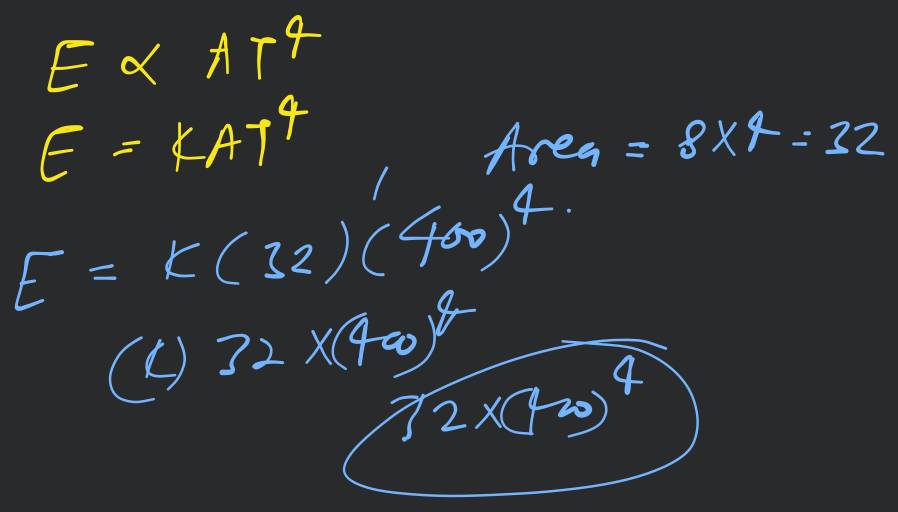 E ∝ AT⁴
E = KAT⁴
Area = 8×4 = 32
E = K(32)(400)⁴.
(K) 32 ×(400)⁴
32×(400)⁴